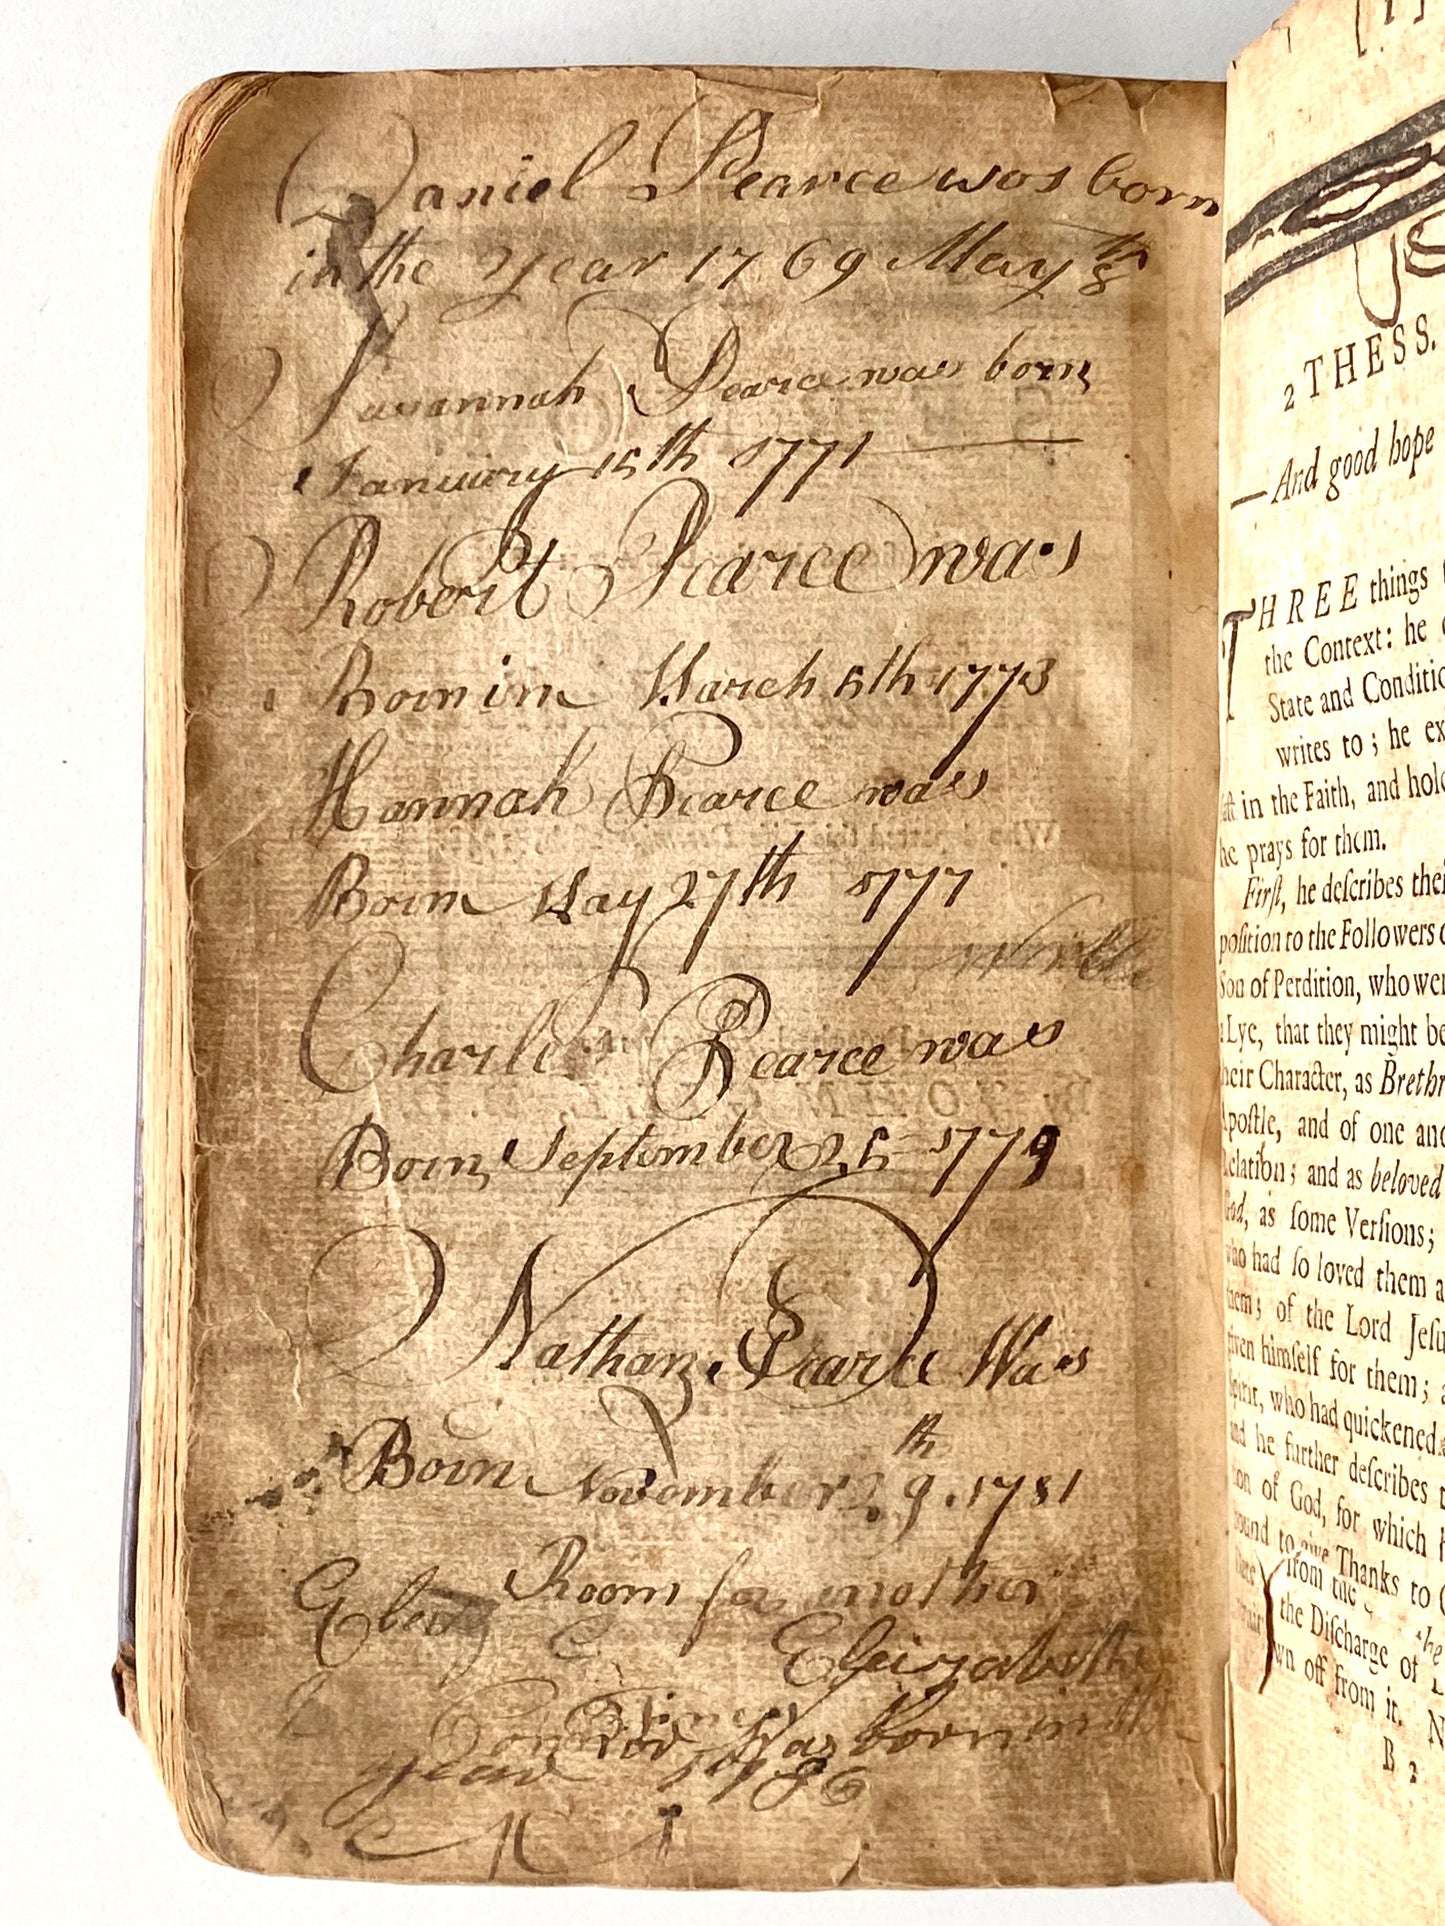 Daniel Pearce was born
in the Year 1769 May 8th
Savannah Pearce was born
January 15th 1771
Robert Pearce was
Born in March 5th 1773
Hannah Pearce was
Born May 27th 1777
Charles Pearce was
Born September 25 1779
Nathan Pearce Was
Born November 29th 1781
Room for mother
Elizabeth
Was born in
year
2 THESS.
—And good hope
THREE things
the Context: he
State and Conditio
writes to; he ex
in the Faith, and hold
he prays for them.
First, he describes thei
position to the Followers
Son of Perdition, who wer
Lye, that they might be
heir Character, as Brethr
Apostle, and of one and
Relation; and as beloved
God, as some Versions;
who had so loved them a
them; of the Lord Jesu
given himself for them; a
Spirit, who had quickened
and he further describes
of God, for which
bound to give Thanks to
from the
the Discharge of
own off from it. N
B 2